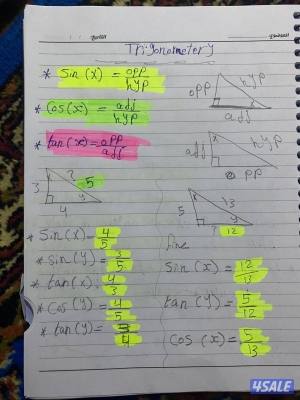 Trigonometry
* Sin(x) = opp/hyp
opp hyp
adj
* Cos(x) = adj/hyp
* tan(x) = opp/adj
x
adj hyp
opp
x
3 ? 5
y
4
x
5 13
y
? 12
* Sin(x) = 4/5
* sin(y) = 3/5
* tan(x) = 4/3
* Cos(y) = 4/5
* tan(y) = 3/4
Sin(x) = 12/13
tan(y) = 5/12
Cos(x) = 5/13
4SALE